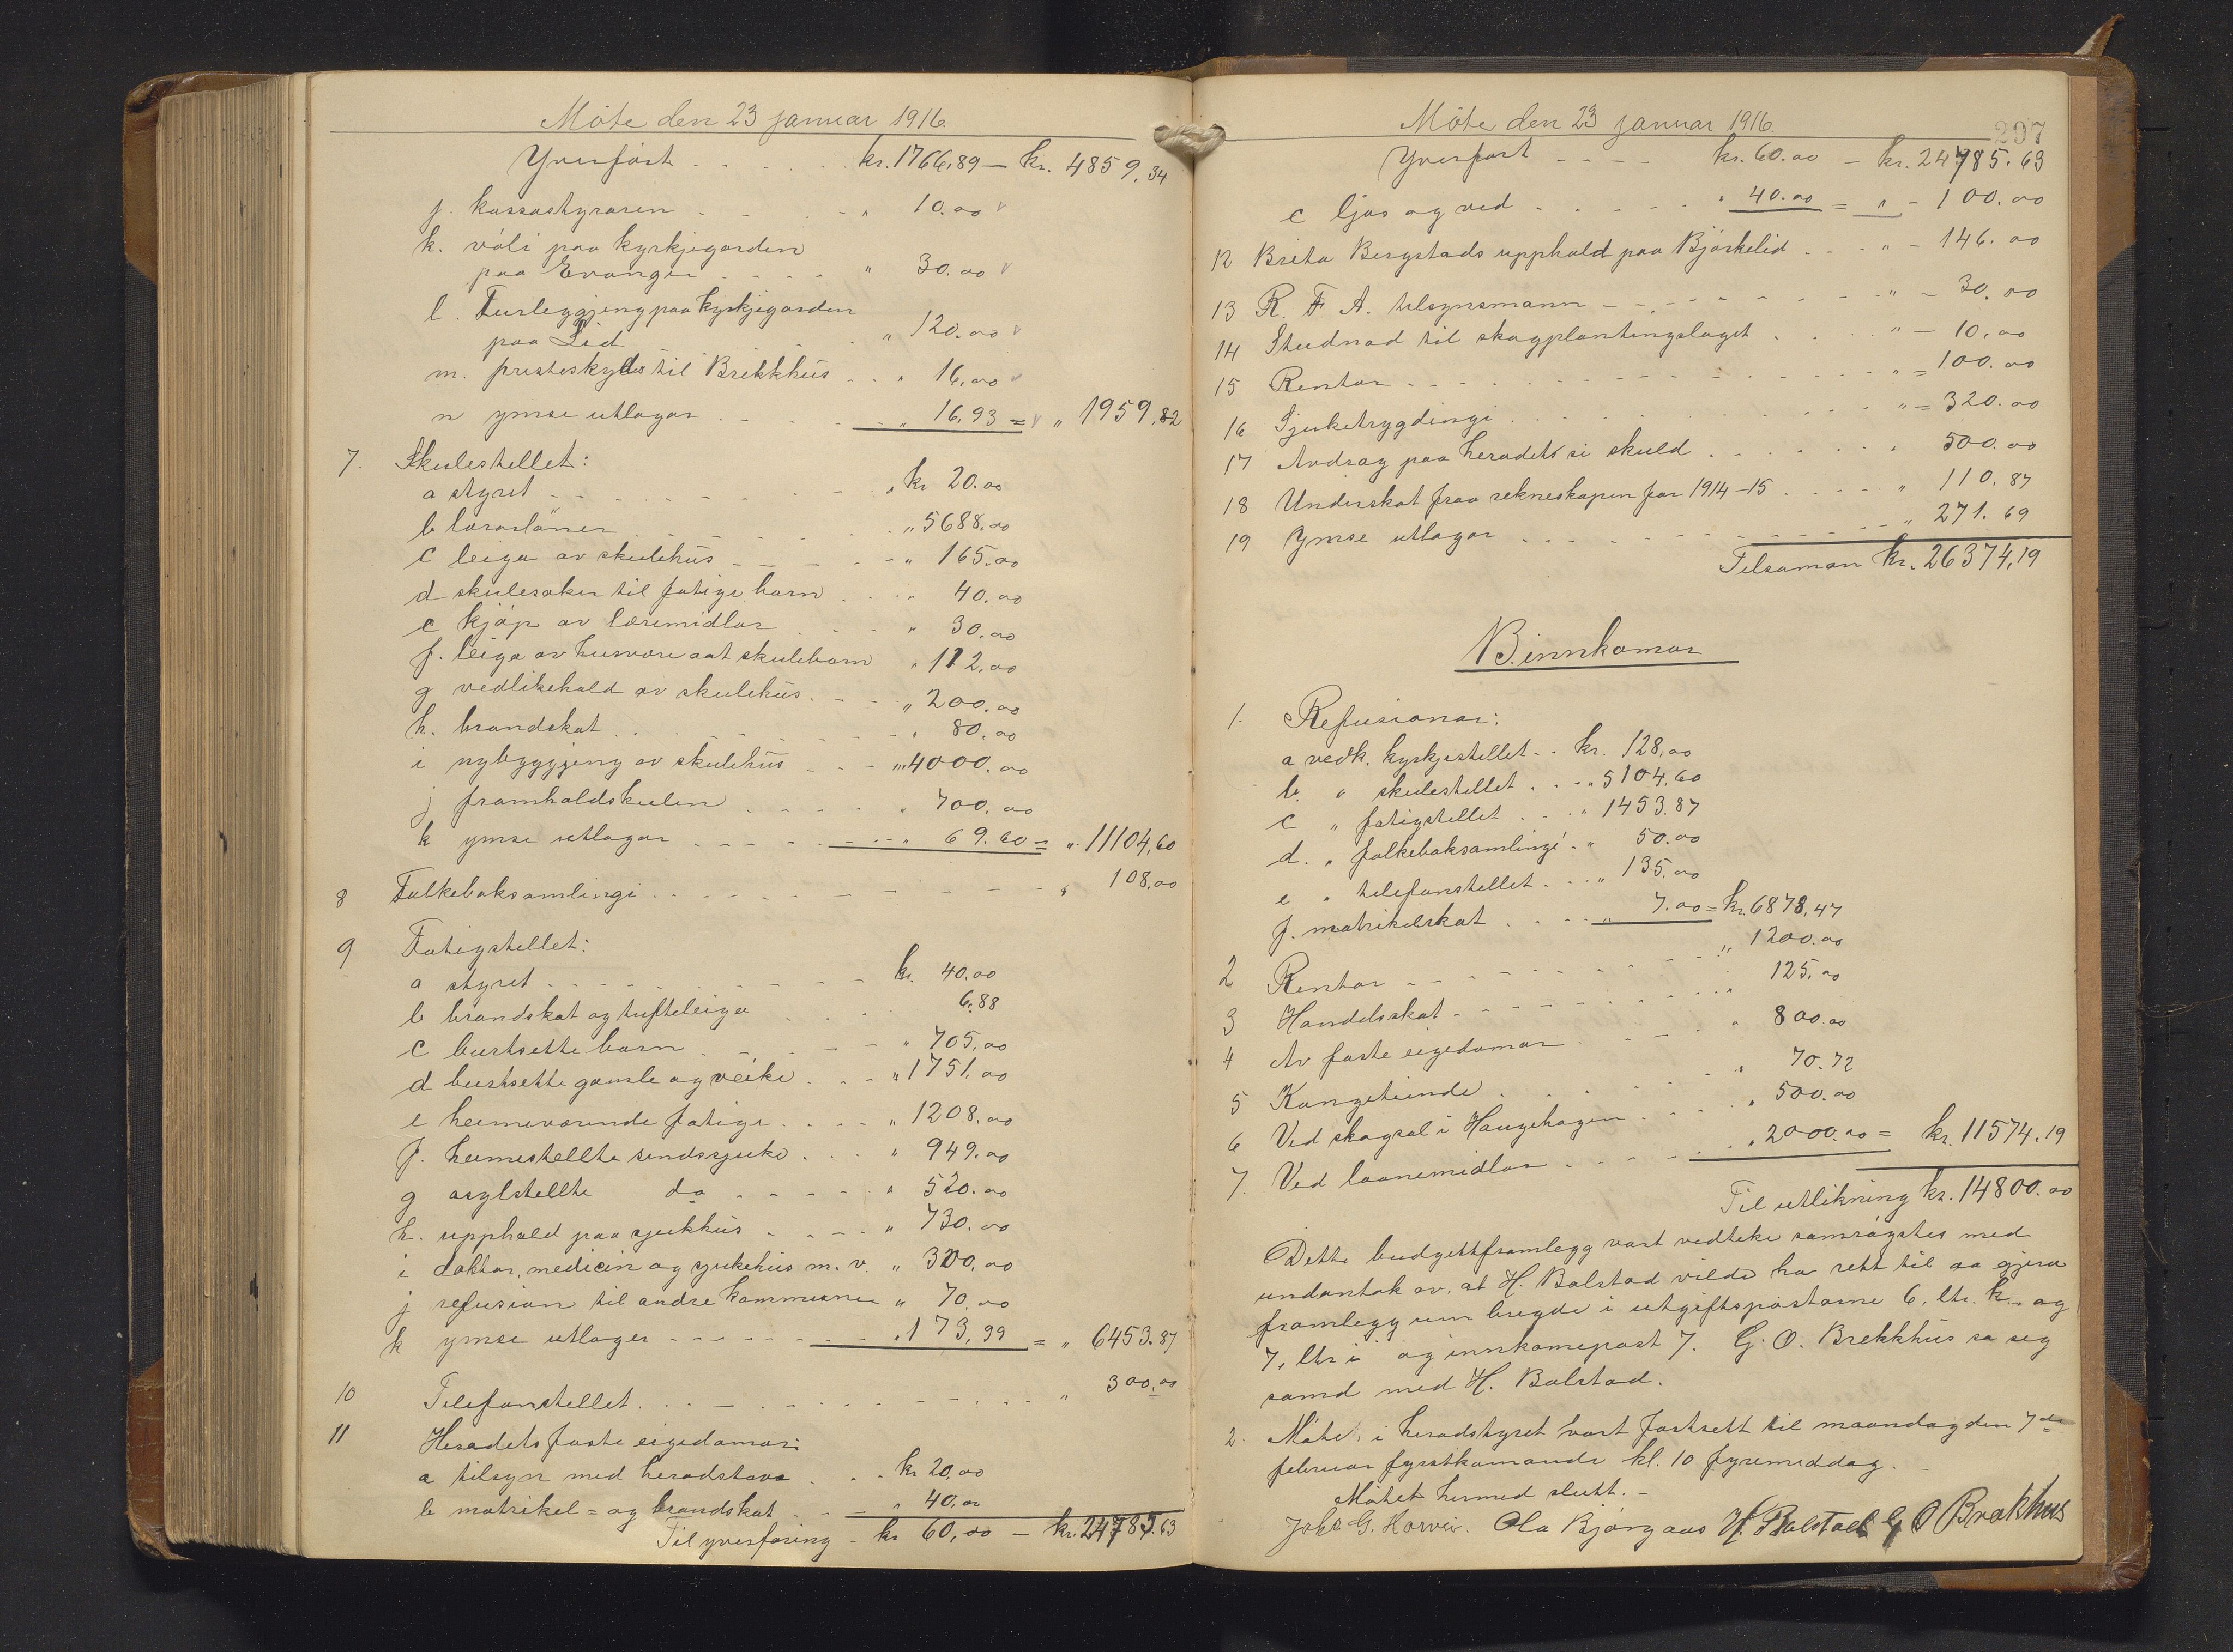 Möte den 23 januar 1916.
Yverfört . . . . . kr. 1766,89 — kr. 4859,34
j. kassastyraren . . . . " 10.00
k. völi paa kyrkjegarden
paa Evanger . . . . " 30.00
l. Turleggjing paa kyrkjegarden
paa Lid . . . . " 120.00
m. presteskyds til Brekkhus . . " 16,00
n ymse utlagor . . . . " 16,93 = " 1959,82
7. Skulestellet:
a styret . . . . kr 20.00
b lærarlöner . . . . " 5688.00
c leiga av skulehus . . . . " 165.00
d skulesaker til fatige barn . . . " 40.00
e kjöp av læremidlar . . . " 30.00
f. leiga av husvære aat skulebarn " 112,00
g vedlikehald av skulehus . . . " 200.00
h. brandskat . . . . " 80.00
i nybyggjing av skulehus . . . " 4000.00
j framhaldskulen . . . . " 700.00
k ymse utlagor . . . . " 69.60 = " 11104,60
8 Folkeboksamlingi . . . . " 108,00
9 Fatigstellet:
a styret . . . . kr. 40.00
b brandskat og tufteleiga . . . 6.88
c burtsette barn . . . . " 705,00
d burtsette gamle og veike . . . " 1751.00
e heimeværende fatige . . . . " 1208.00
f. heimestellte sindssjuke . . . " 949.00
g asylstellte do . . . . " 520.00
h. upphald paa sjukhus . . . . " 730.00
i doktor, medicin og sjukehus m. v. " 300,00
j refusion til andre kommuner " 70,00
k ymse utlager . . . . " 173,99 = " 6453.87
10 Telefonstellet . . . . " 300,00
11 Heradets faste eigedomar:
a tilsyn med heradstova . . . kr 20,00
b matrikel= og brandskat . . . " 40,00
Til yverföring - kr 60,00 — kr. 24785.63
Möte den 23 januar 1916.
297
Yverfört . . . . kr. 60.00 — kr. 24785.63
c ljos og ved . . . . " 40.00 = " - 100.00
12 Brita Bergstads upphald paa Björkelid . . . " - 146.00
13 R. F A. tilsynsmann . . . . " - 30.00
14 Studnad til skogplantingslaget . . . " - 10,00
15 Rentor . . . . " = 100.00
16 Sjuketrygdingi . . . . " = 320.00
17 Avdrag paa heradets si skuld . . . . " 500.00
18 Underskot fraa rekneskapen for 1914-15 . . . . " 110,87
19 Ymse utlagor . . . . " 271.69
Tilsaman kr. 26374,19
B. innkomor
1. Refusionar:
a vedk. kyrkjestellet . . kr. 128,00
b. " skulestellet . . . " 5104,60
c " fatigstellet . . . " 1453.87
d. " folkeboksamlingi . " 50.00
e " telefonstellet . . . " 135.00
f. matrikelskat . . . . " 7.00 = kr. 6878,47
2 Rentor . . . . " 1200.00
3 Handelsskat . . . . " 125.00
4 Av faste eigedomar . . . . " 800.00
5 Kongetiende . . . . " 70.72
6 Ved skogsal i Haugehagen . . . . " 500.00
7. Ved laanemidlar . . . . " 2000.00 = kr. 11574.19
Til utlikning kr. 14800.00
Dette budgettframlegg vart vedteke samröystes med
undantak av, at H. Bolstad vilde ha rett til aa gjera
framlegg um bregde i utgiftspostarne 6. ltr. k. og
7, ltr i og innkomepost 7. G. O. Brekkhus sa seg
samd med H. Bolstad.
2. Möte i heradstyret vart fastsett til maandag den 7de
februar fyrstkomande kl. 10 fyremiddag.
Mötet hermed slutt.
Johs G. Horvei. Ola Bjørgaas H. Bolstad G O Brekhus